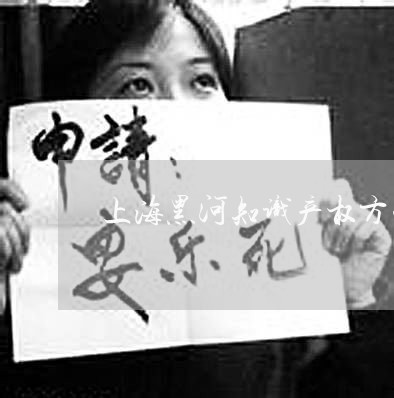 申請：
上海黑河知识产权方
安乐死